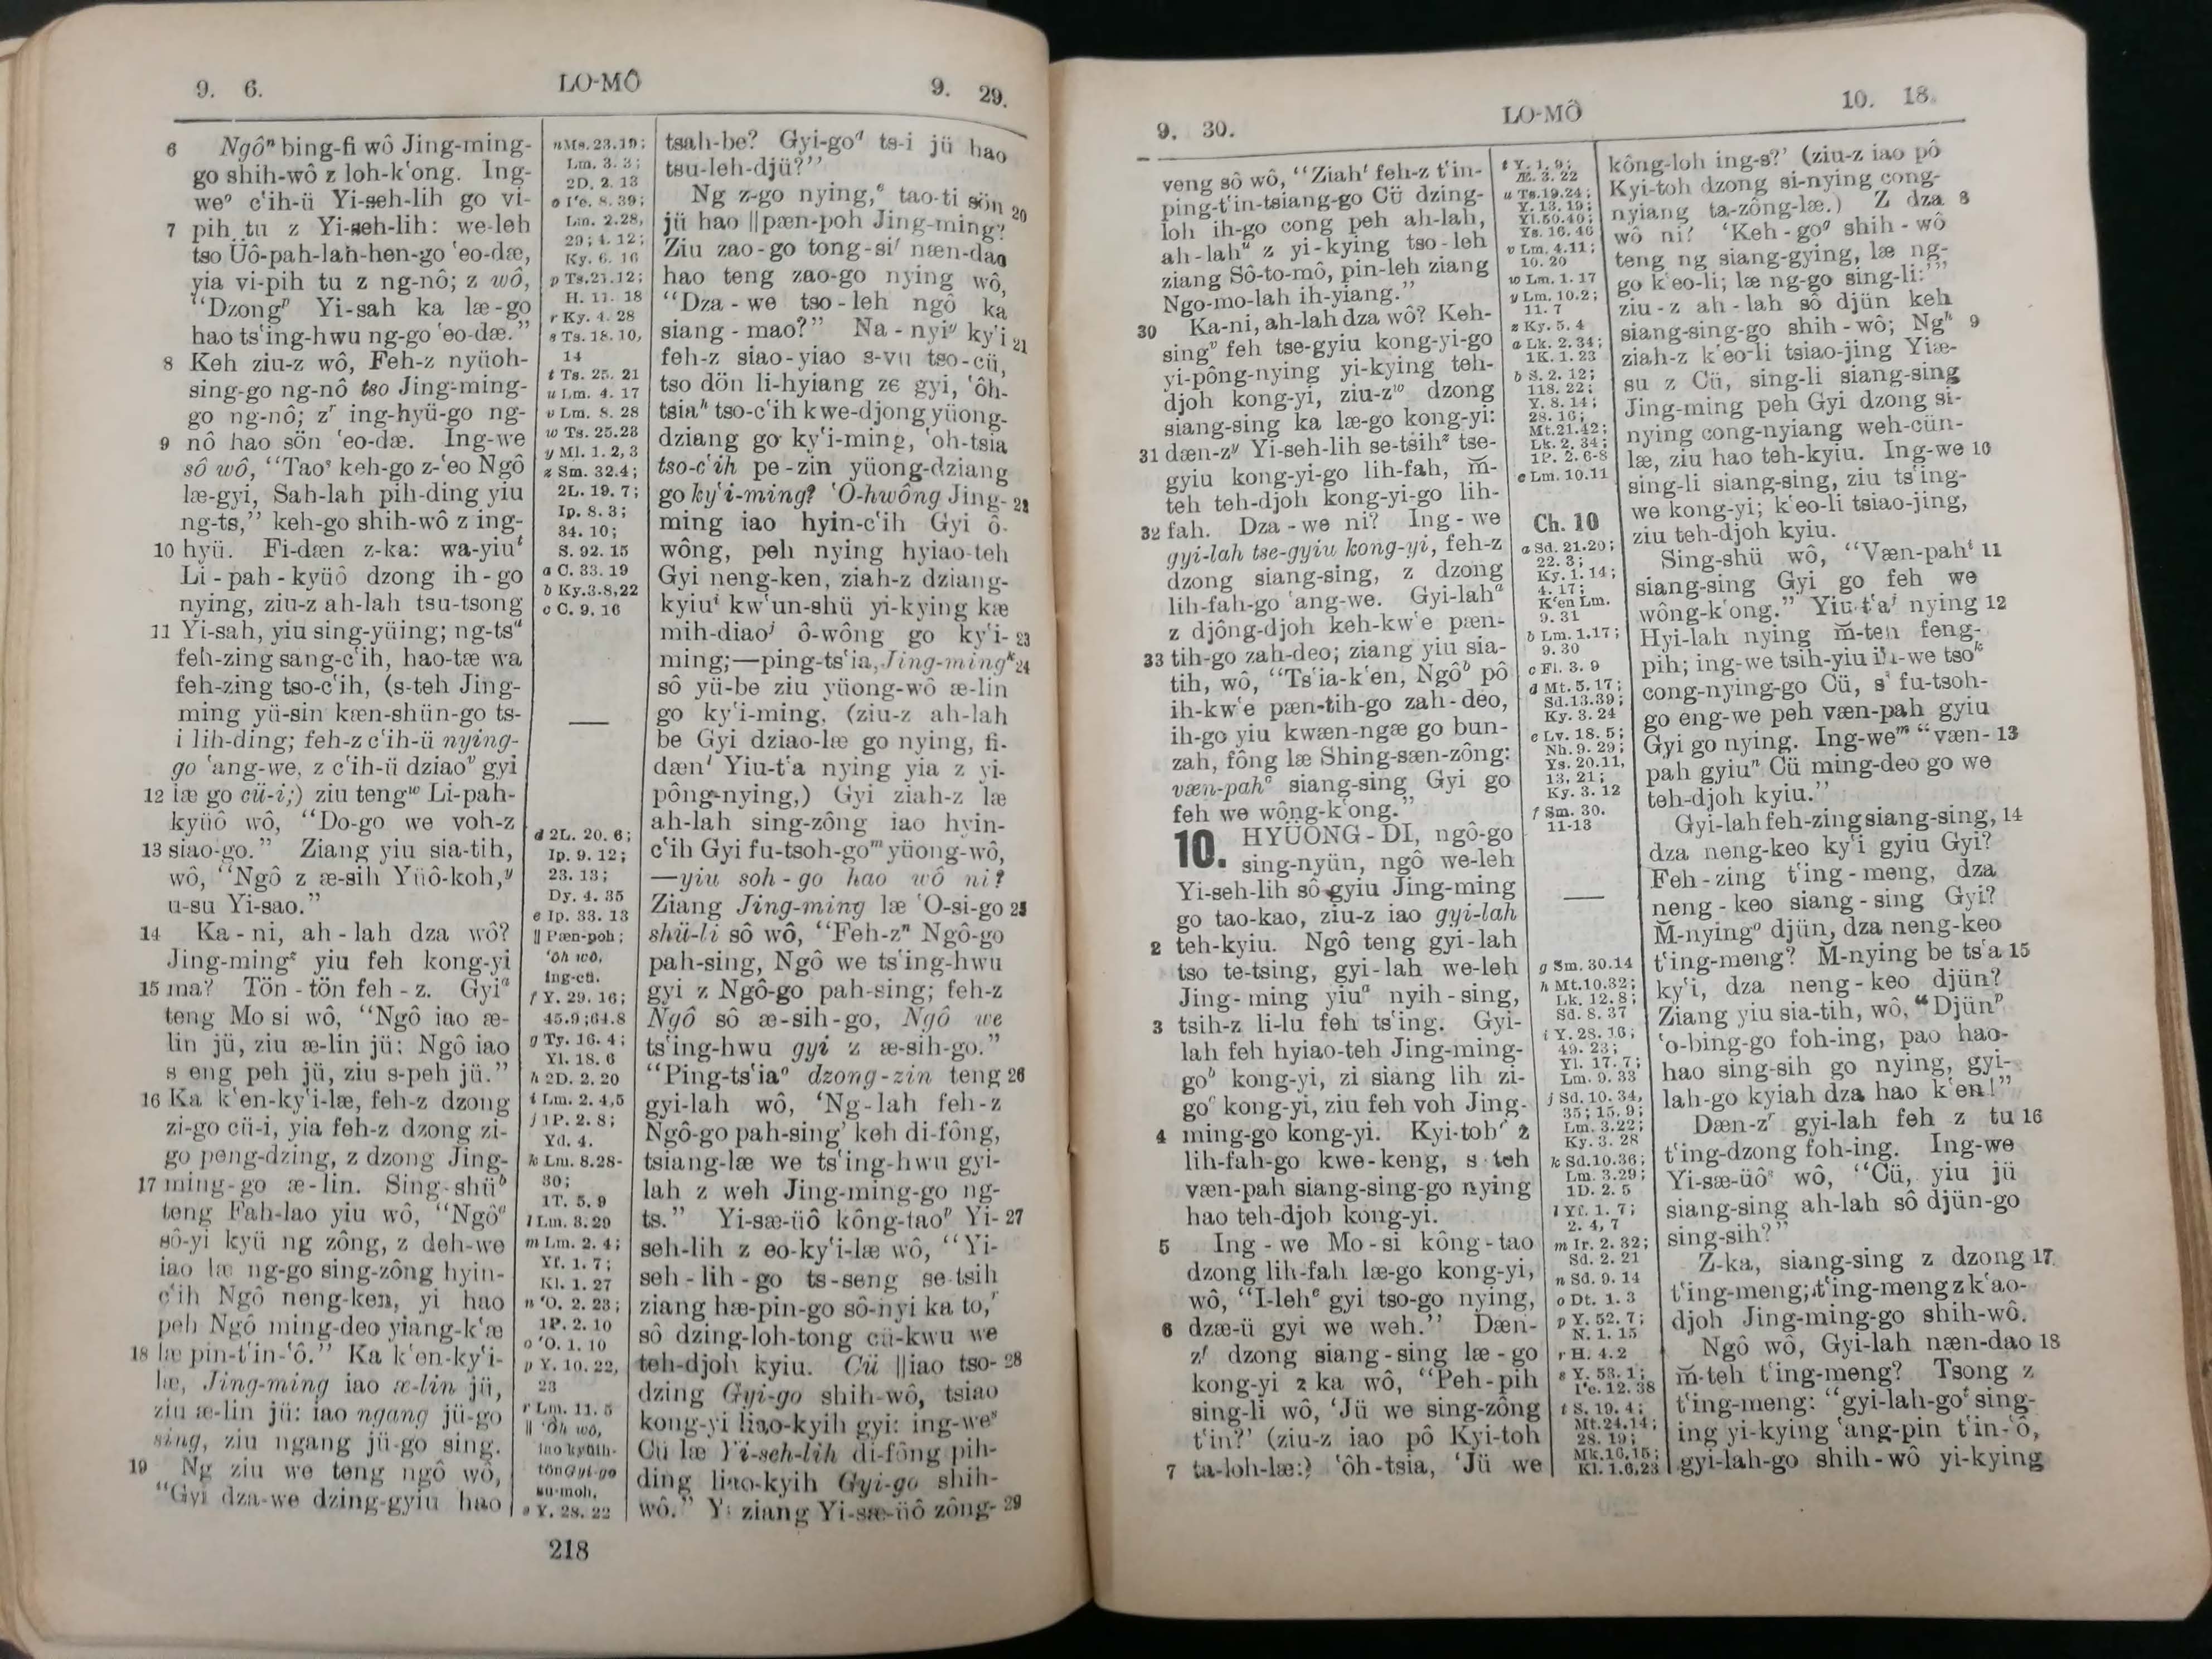 9. 6.
LO-MÔ
9. 29.
6 Ngôⁿ bing-fi wô Jing-ming-
go shih-wô z loh-k‘ong. Ing-
weᵒ c‘ih-ü Yi-seh-lih go vi-
7 pih tu z Yi-seh-lih: we-leh
tso Üô-pah-lah-hen-go ‘eo-dæ,
yia vi-pih tu z ng-nô; z wô,
“Dzongᵖ Yi-sah ka læ-go
hao ts‘ing-hwu ng-go ‘eo-dæ.”
8 Keh ziu-z wô, Feh-z nyüoh-
sing-go ng-nô tso Jing-ming-
go ng-nô; zʳ ing-hyü-go ng-
9 nô hao sön ‘eo-dæ. Ing-we
sô wô, “Taoˢ keh-go z-‘eo Ngô
læ-gyi, Sah-lah pih-ding yiu
ng-ts,” keh-go shih-wô z ing-
10 hyü. Fi-dæn z-ka: wa-yiuᵗ
Li-pah-kyüô dzong ih-go
nying, ziu-z ah-lah tsu-tsong
11 Yi-sah, yiu sing-yüing; ng-tsᵘ
feh-zing sang-c‘ih, hao-tæ wa
feh-zing tso-c‘ih, (s-teh Jing-
ming yü-sin kæn-shün-go ts-
i lih-ding; feh-z c‘ih-ü nying-
go ‘ang-we, z c‘ih-ü dziaoᵛ gyi
12 læ go cü-i;) ziu tengʷ Li-pah-
kyüô wô, “Do-go we voh-z
13 siao-go.” Ziang yiu sia-tih,
wô, “Ngô z æ-sih Yüô-koh,ʸ
u-su Yi-sao.”
14 Ka-ni, ah-lah dza wô?
Jing-mingᶻ yiu feh kong-yi
15 ma? Tön-tön feh-z. Gyiᵃ
teng Mo si wô, “Ngô iao æ-
lin jü, ziu æ-lin jü: Ngô iao
s eng peh jü, ziu s-peh jü.”
16 Ka k‘en-ky‘i-læ, feh-z dzong
zi-go cü-i, yia feh-z dzong zi-
go peng-dzing, z dzong Jing-
17 ming-go æ-lin. Sing-shüᵇ
teng Fah-lao yiu wô, “Ngôᶜ
sô-yi kyü ng zông, z deh-we
iao læ ng-go sing-zông hyin-
c‘ih Ngô neng-ken, yi hao
peh Ngô ming-deo yiang-k‘æ
18 læ pin-t‘in-‘ô.” Ka k‘en-ky‘i-
læ, Jing-ming iao æ-lin jü,
ziu æ-lin jü: iao ngang jü-go
sing, ziu ngang jü-go sing.
19 Ng ziu we teng ngô wô,
“Gyi dza-we dzing-gyiu hao
n Ms. 23.19;
Lm. 3. 3;
2D. 2. 13
Lm. 2.28,
29; 4. 12;
Ky. 6. 16
p Ts.21.12;
H. 11. 18
r Ky. 4. 28
s Ts. 18. 10,
14
t Ts. 25. 21
u Lm. 4. 17
v Lm. 8. 28
w Ts. 25.23
y Ml. 1. 2, 3
z Sm. 32.4;
2L. 19. 7;
Ip. 8. 3;
34. 10;
S. 92. 15
a C. 33. 19
b Ky.3.8,22
c C. 9. 16
d 2L. 20. 6;
Ip. 9. 12;
23. 13;
Dy. 4. 35
e Ip. 33. 13
|| Pæn-poh;
‘ôh wô,
ing-cü.
f Y. 29. 16;
45.9;64.8
g Ty. 16. 4;
Yl. 18. 6
h 2D. 2. 20
i Lm. 2. 4,5
j 1P. 2. 8;
Yd. 4.
k Lm. 8.28-
30;
1T. 5. 9
l Lm. 3.29
m Lm. 2. 4;
Yf. 1. 7;
Kl. 1. 27
n ‘O. 2. 23;
1P. 2. 10
o ‘O. 1. 10
p Y. 10. 22,
23
r Lm. 11. 5
|| ‘ôh wô,
iao kyüih-
tön Gyi-go
su-moh,
s Y. 28. 22
tsah-be? Gyi-goᵈ ts-i jü hao
tsu-leh-djü?”
Ng z-go nying,ᵉ tao-ti sön 20
jü hao ||pæn-poh Jing-ming?
Ziu zao-go tong-siᶠ næn-dao
hao teng zao-go nying wô,
“Dza-we tso-leh ngô ka
siang-mao?” Na-nyiᵍ ky‘i 21
feh-z siao-yiao s-vu tso-cü,
tso dön li-hyiang ze gyi, ‘ôh-
tsiaʰ tso-c‘ih kwe-djong yüong-
dziang go ky‘i-ming, ‘oh-tsia
tso-c‘ih pe-zin yüong-dziang
go ky‘i-ming? ‘O-hwông Jing- 22
ming iao hyin-c‘ih Gyi ô-
wông, peh nying hyiao-teh
Gyi neng-ken, ziah-z dziang-
kyiuⁱ kw‘un-shü yi-kying kæ
mih-diaoʲ ô-wông go ky‘i- 23
ming;—ping-ts‘ia, Jing-mingᵏ 24
sô yü-be ziu yüong-wô æ-lin
go ky‘i-ming, (ziu-z ah-lah
be Gyi dziao-læ go nying, fi-
dænˡ Yiu-t‘a nying yia z yi-
pông-nying,) Gyi ziah-z læ
ah-lah sing-zông iao hyin-
c‘ih Gyi fu-tsoh-goᵐ yüong-wô,
—yiu soh-go hao wô ni?
Ziang Jing-ming læ ‘O-si-go 25
shü-li sô wô, “Feh-zⁿ Ngô-go
pah-sing, Ngô we ts‘ing-hwu
gyi z Ngô-go pah-sing; feh-z
Ngô sô æ-sih-go, Ngô we
ts‘ing-hwu gyi z æ-sih-go.”
“Ping-ts‘iaᵒ dzong-zin teng 26
gyi-lah wô, ‘Ng-lah feh-z
Ngô-go pah-sing’ keh di-fông,
tsiang-læ we ts‘ing-hwu gyi-
lah z weh Jing-ming-go ng-
ts.” Yi-sæ-üô kông-taoᵖ Yi- 27
seh-lih z eo-ky‘i-læ wô, “Yi-
seh-lih-go ts-seng se-tsih
ziang hæ-pin-go sô-nyi ka to,ʳ
sô dzing-loh-tong cü-kwu we
teh-djoh kyiu. Cü ||iao tso- 28
dzing Gyi-go shih-wô, tsiao
kong-yi liao-kyih gyi: ing-weˢ
Cü læ Yi-seh-lih di-fông pih-
ding liao-kyih Gyi-go shih-
wô.” Yi ziang Yi-sæ-üô zông- 29
218
9. 30.
LO-MÔ
10. 18.
veng sô wô, “Ziahᵗ feh-z t‘in-
ping-t‘in-tsiang-go Cü dzing-
loh ih-go cong peh ah-lah,
ah-lahᵘ z yi-kying tso-leh
ziang Sô-to-mô, pin-leh ziang
Ngo-mo-lah ih-yiang.”
30 Ka-ni, ah-lah dza wô? Keh-
singᵛ feh tse-gyiu kong-yi-go
yi-pông-nying yi-kying teh-
djoh kong-yi, ziu-zʷ dzong
siang-sing ka læ-go kong-yi:
31 dæn-zʸ Yi-seh-lih se-tsihᶻ tse-
gyiu kong-yi-go lih-fah, m̆-
teh teh-djoh kong-yi-go lih-
32 fah. Dza-we ni? Ing-we
gyi-lah tse-gyiu kong-yi, feh-z
dzong siang-sing, z dzong
lih-fah-go ‘ang-we. Gyi-lahᵃ
z djông-djoh keh-kw‘e pæn-
33 tih-go zah-deo; ziang yiu sia-
tih, wô, “Ts‘ia-k‘en, Ngôᵇ pô
ih-kw‘e pæn-tih-go zah-deo,
ih-go yiu kwæn-ngæ go bun-
zah, fông læ Shing-sæn-zông:
væn-pahᶜ siang-sing Gyi go
feh we wông-k‘ong.”
10. HYÜONG-DI, ngô-go
sing-nyün, ngô we-leh
Yi-seh-lih sô gyiu Jing-ming
go tao-kao, ziu-z iao gyi-lah
2 teh-kyiu. Ngô teng gyi-lah
tso te-tsing, gyi-lah we-leh
Jing-ming yiuᵃ nyih-sing,
tsih-z li-lu feh ts‘ing. Gyi-
3 lah feh hyiao-teh Jing-ming-
goᵇ kong-yi, zi siang lih zi-
goᶜ kong-yi, ziu feh voh Jing-
4 ming-go kong-yi. Kyi-tohᵈ z
lih-fah-go kwe-keng, s teh
væn-pah siang-sing-go nying
hao teh-djoh kong-yi.
5 Ing-we Mo-si kông-tao
dzong lih-fah læ-go kong-yi,
wô, “I-lehᵉ gyi tso-go nying,
6 dzæ-ü gyi we weh.” Dæn-
zᶠ dzong siang-sing læ-go
kong-yi z ka wô, “Peh-pih
sing-li wô, ‘Jü we sing-zông
t‘in?’ (ziu-z iao pô Kyi-toh
7 ta-loh-læ:) ‘ôh-tsia, ‘Jü we
t Y. 1. 9;
Æ. 3. 22
u Ts.19.24;
Y. 13. 19;
Yl.50.40;
Ys. 16. 46
v Lm. 4.11;
10. 20
w Lm. 1. 17
y Lm. 10.2;
11. 7
z Ky. 5. 4
a Lk. 2.34;
1K. 1. 23
b S. 2. 12;
118. 22;
Y. 8. 14;
28. 16;
Mt.21.42;
Lk. 2. 34;
1P. 2. 6-8
c Lm. 10.11
Ch. 10
a Sd. 21.20;
22. 3;
Ky. 1. 14;
4. 17;
K‘en Lm.
9. 31
b Lm. 1.17;
9. 30
c Fl. 3. 9
d Mt. 5. 17;
Sd.13.39;
Ky. 3. 24
e Lv. 18. 5;
Nh. 9. 29;
Ys. 20.11,
13, 21;
Ky. 3. 12
f Sm. 30.
11-13
g Sm. 30.14
h Mt.10.32;
Lk. 12. 8;
Sd. 8. 37
i Y. 28. 16;
49. 23;
Yl. 17. 7;
Lm. 9. 33
j Sd. 10. 34,
35; 15. 9;
Lm. 3.22;
Ky. 3. 28
k Sd.10.36;
Lm. 3.29;
1D. 2. 5
l Yf. 1. 7;
2. 4, 7
m Ir. 2. 32;
Sd. 2. 21
n Sd. 9. 14
o Dt. 1. 3
p Y. 52. 7;
N. 1. 15
r H. 4.2
s Y. 53. 1;
I‘e. 12. 38
t S. 19. 4;
Mt.24.14;
28. 19;
Mk.16.15;
Kl. 1.6,23
kông-loh ing-s?’ (ziu-z iao pô
Kyi-toh dzong si-nying cong-
nyiang ta-zông-læ.) Z dza 8
wô ni? ‘Keh-goᵍ shih-wô
teng ng siang-gying, læ ng-
go k‘eo-li; læ ng-go sing-li:’”
ziu-z ah-lah sô djün keh
siang-sing-go shih-wô; Ngʰ 9
ziah-z k‘eo-li tsiao-jing Yiæ-
su z Cü, sing-li siang-sing
Jing-ming peh Gyi dzong si-
nying cong-nyiang weh-cün-
læ, ziu hao teh-kyiu. Ing-we 10
sing-li siang-sing, ziu ts‘ing-
we kong-yi; k‘eo-li tsiao-jing,
ziu teh-djoh kyiu.
Sing-shü wô, “Væn-pahⁱ 11
siang-sing Gyi go feh we
wông-k‘ong.” Yiu-t‘aʲ nying 12
Hyi-lah nying m̆-teh feng-
pih; ing-we tsih-yiu ih-we tsoᵏ
cong-nying-go Cü, sˡ fu-tsoh-
go eng-we peh væn-pah gyiu
Gyi go nying. Ing-weᵐ “væn- 13
pah gyiuⁿ Cü ming-deo go we
teh-djoh kyiu.”
Gyi-lah feh-zing siang-sing, 14
dza neng-keo ky‘i gyiu Gyi?
Feh-zing t‘ing-meng, dza
neng-keo siang-sing Gyi?
M̆-nyingᵒ djün, dza neng-keo
t‘ing-meng? M̆-nying be ts‘a 15
ky‘i, dza neng-keo djün?
Ziang yiu sia-tih, wô, “Djünᵖ
‘o-bing-go foh-ing, pao hao-
hao sing-sih go nying, gyi-
lah-go kyiah dza hao k‘en!”
Dæn-zʳ gyi-lah feh z tu 16
t‘ing-dzong foh-ing. Ing-we
Yi-sæ-üôˢ wô, “Cü, yiu jü
siang-sing ah-lah sô djün-go
sing-sih?”
Z-ka, siang-sing z dzong 17
t‘ing-meng; t‘ing-meng z k‘ao-
djoh Jing-ming-go shih-wô.
Ngô wô, Gyi-lah næn-dao 18
m̆-teh t‘ing-meng? Tsong z
t‘ing-meng: “gyi-lah-goᵗ sing-
ing yi-kying ‘ang-pin t‘in-‘ô,
gyi-lah-go shih-wô yi-kying